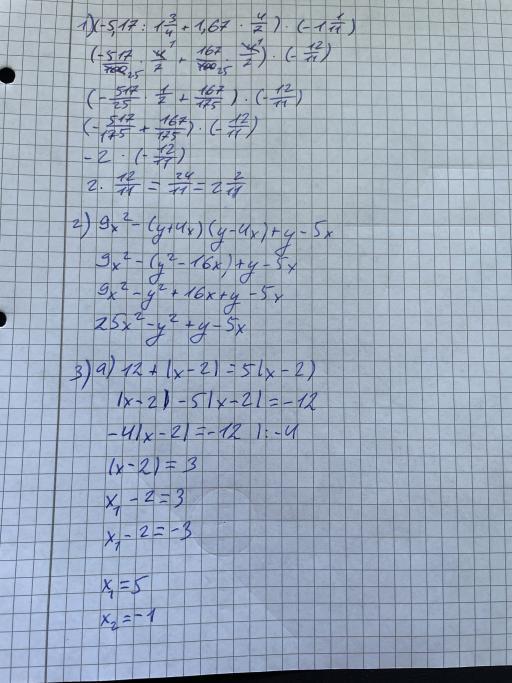 1) (-5,17 : 1 3/4 + 1,67 · 4/7) · (-1 1/11)
(-517/100 25 · 4 1/7 + 167/100 25 · 4 1/7) · (-12/11)
(-517/25 · 1/7 + 167/175) · (-12/11)
(-517/175 + 167/175) · (-12/11)
-2 · (-12/11)
2 · 12/11 = 24/11 = 2 2/11
2) 9x² - (y+4x)(y-4x) + y - 5x
9x² - (y² - 16x) + y - 5x
9x² - y² + 16x + y - 5x
25x² - y² + y - 5x
3) a) 12 + |x-2| = 5|x-2|
|x-2| - 5|x-2| = -12
-4|x-2| = -12 |: -4
|x-2| = 3
x₁ - 2 = 3
x₁ - 2 = -3
x₁ = 5
x₂ = -1